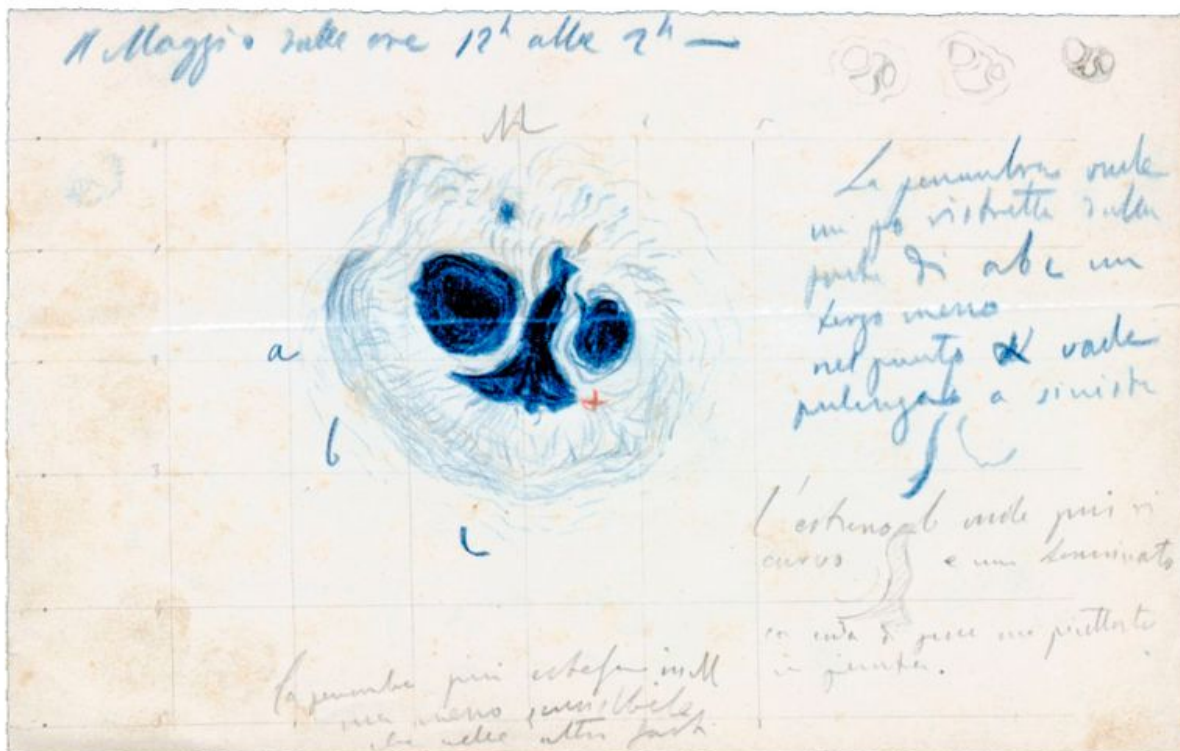 Maggio dalle ore 12h alle 2h —
M
b
La penumbra vuole
un po ristretta dalla
parte di abc un
terzo meno
nel punto vuole
a sinistra
a
b
c
L'estremo b vuole più
curvo e non terminato
coda di pesce ma piuttosto
in
la penumbra più estesa in M
ma meno sensibile
che nelle altre parti